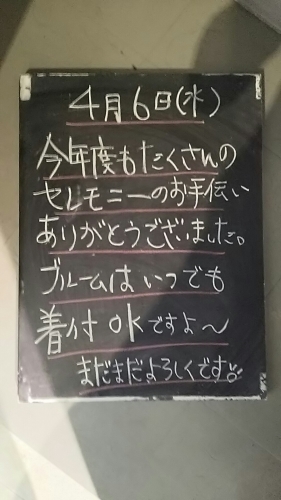 4月6日(水)
今年度もたくさんの
セレモニーのお手伝い
ありがとうございました。
ブルームはいつでも
着付OKですよ〜
まだまだよろしくです